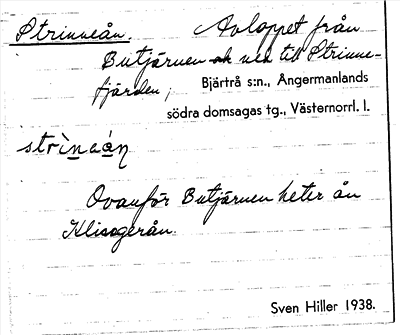 Strinneån. Avloppet från
Butjärnen och ned till Strinne-
fjärden, Bjärtrå s:n., Ångermanlands
södra domsagas tg., Västernorrl. l.
strìnaán
Ovanför Butjärnen heter ån
Klisgerån.
Sven Hiller 1938.